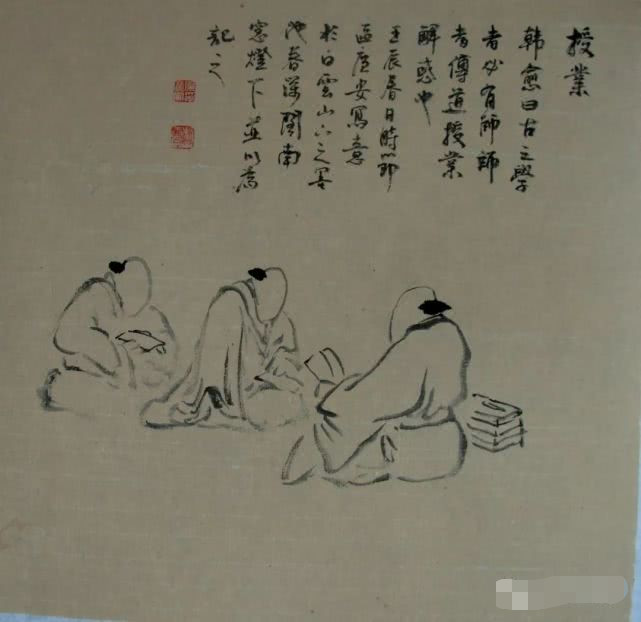 授業
韓愈曰古之學
者必有師師
者傳道授業
解惑也
壬辰春日時節
區安寫意
於白雲山下之
池春深閣南
窓燈下並以爲
記之